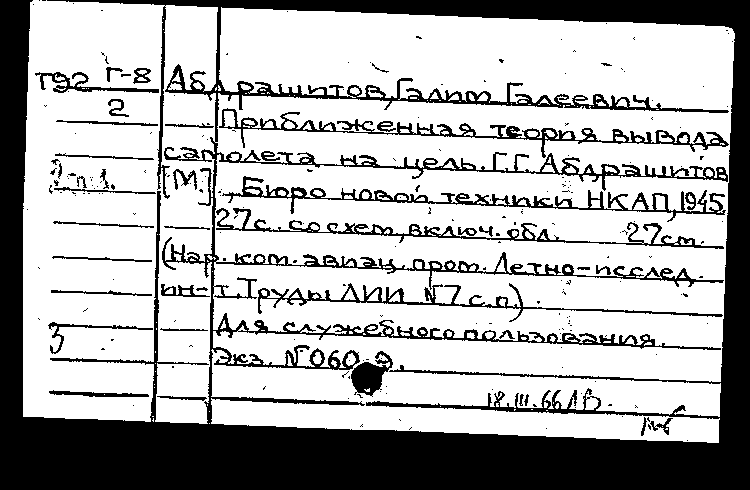 Т92 Г-8 Абдрашитов, Галим Галеевич.
2 Приближенная теория вывода
самолета на цель. Г.Г. Абдрашитов
[М.], Бюро новой техники НКАП, 1945.
27с. со схем., включ. обл. 27см.
(Нар. ком. авиац. пром. Летно-исслед.
ин-т. Труды ЛИИ N7 с.п.).
3 Для служебного пользования.
Экз. N060
18.III.66